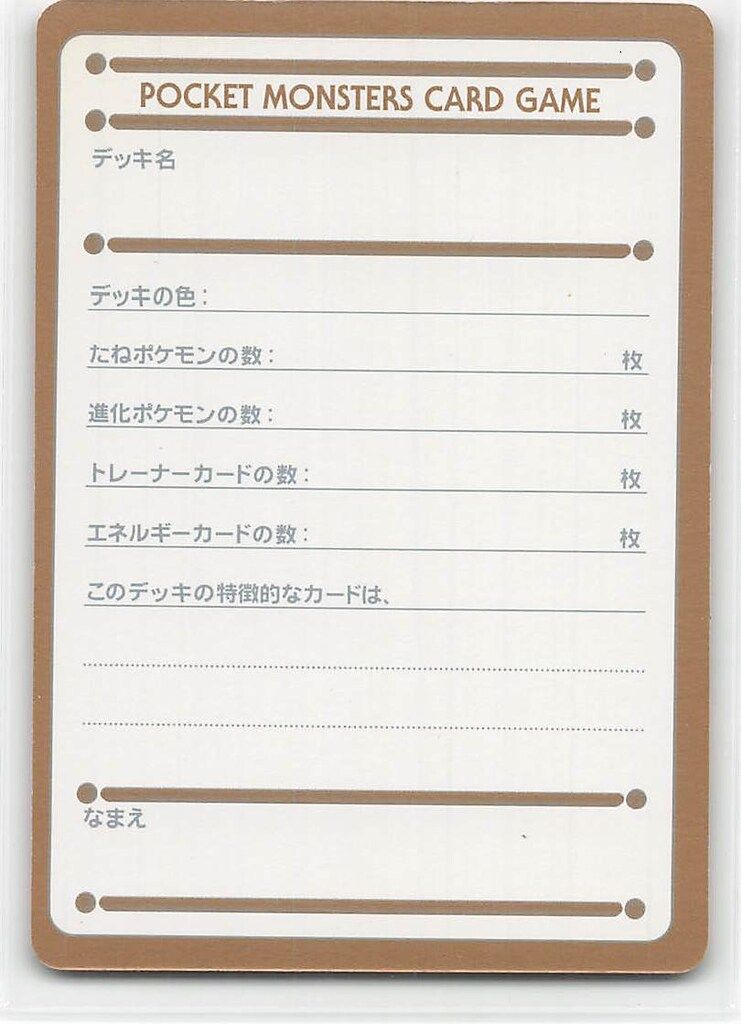 POCKET MONSTERS CARD GAME
デッキ名
デッキの色:
たねポケモンの数: 枚
進化ポケモンの数: 枚
トレーナーカードの数: 枚
エネルギーカードの数: 枚
このデッキの特徴的なカードは、
なまえ